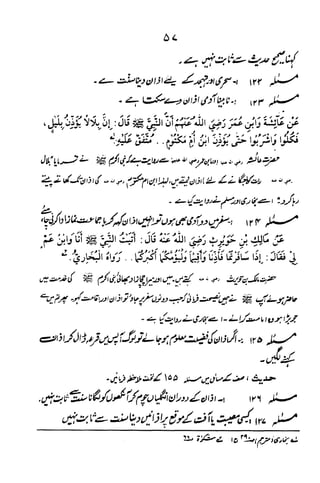 ۵۷
کہنا صحیح حدیث سے ثابت نہیں ہے۔
مسئلہ ۱۲۲ :- سحری اور تہجد کے لیئے اذان دینا سنت ہے۔
مسئلہ ۱۲۳ :- نابینا آدمی اذان دے سکتا ہے۔
عَنْ عَائِشَةَ وَابْنِ عُمَرَ رَضِيَ اللهُ عَنْهُمْ أَنَّ النَّبِيَّ ﷺ قَالَ: إِنَّ بِلَالًا يُؤَذِّنُ بِلَيْلٍ،
فَكُلُوا وَاشْرَبُوا حَتَّى يُؤَذِّنَ ابْنُ أُمِّ مَكْتُومٍ. . مُتَّفَقٌ عَلَيْهِ.
حضرت عائشہ اور ابن عمر سے روایت ہے کہ نبی اکرم ﷺ نے فرمایا بلال
رات کو جگانے کے لئے اذان دیتے ہیں، لہذا ابن ام مکتوم کی اذان تک کھاتے پیتے
رہا کرو۔ اسے بخاری اور مسلم نے روایت کیا ہے۔
مسئلہ ۱۲۴ :- سفر میں دو آدمی بھی ہوں تو انہیں اذان کہہ کر باجماعت نماز ادا کرنی چاہیے
عَنْ مَالِكِ بْنِ حُوَيْرِثٍ رَضِيَ اللهُ عَنْهُ قَالَ: أَتَيْتُ النَّبِيَّ ﷺ أَنَا وَابْنُ عَمٍّ
لِي فَقَالَ: إِذَا سَافَرْتُمَا فَأَذِّنَا وَأَقِيمَا وَلْيَؤُمَّكُمَا أَكْبَرُكُمَا. . رَوَاهُ الْبُخَارِيُّ.
حضرت مالک بن حویرث کہتے ہیں، میں اور میرا چچا زاد بھائی نبی اکرم ﷺ کی خدمت میں
حاضر ہوئے آپ ﷺ نے ہمیں نصیحت فرمائی کہ جب دونوں سفر پر جاؤ تو اذان اور اقامت کہو، پھر تم میں سے
جو بڑا ہو وہ امامت کرائے۔ اسے بخاری نے روایت کیا ہے۔
مسئلہ ۱۲۵ :- اگر اذان کی فضیلت معلوم ہو جائے تو لوگ آپس میں قرعہ ڈال کر اذان
کہنے لگیں۔
حدیث، صف کے مسائل میں مسئلہ ۱۵۵ کے تحت ملاحظہ فرمائیں۔
مسئلہ ۱۲۶ :- اذان کے دوران انگلیاں چوم کر آنکھوں کو لگانا سنت سے ثابت نہیں۔
مسئلہ ۱۲۷ :- کسی مصیبت یا آفت کے موقع پر اذانیں دینا سنت سے ثابت نہیں